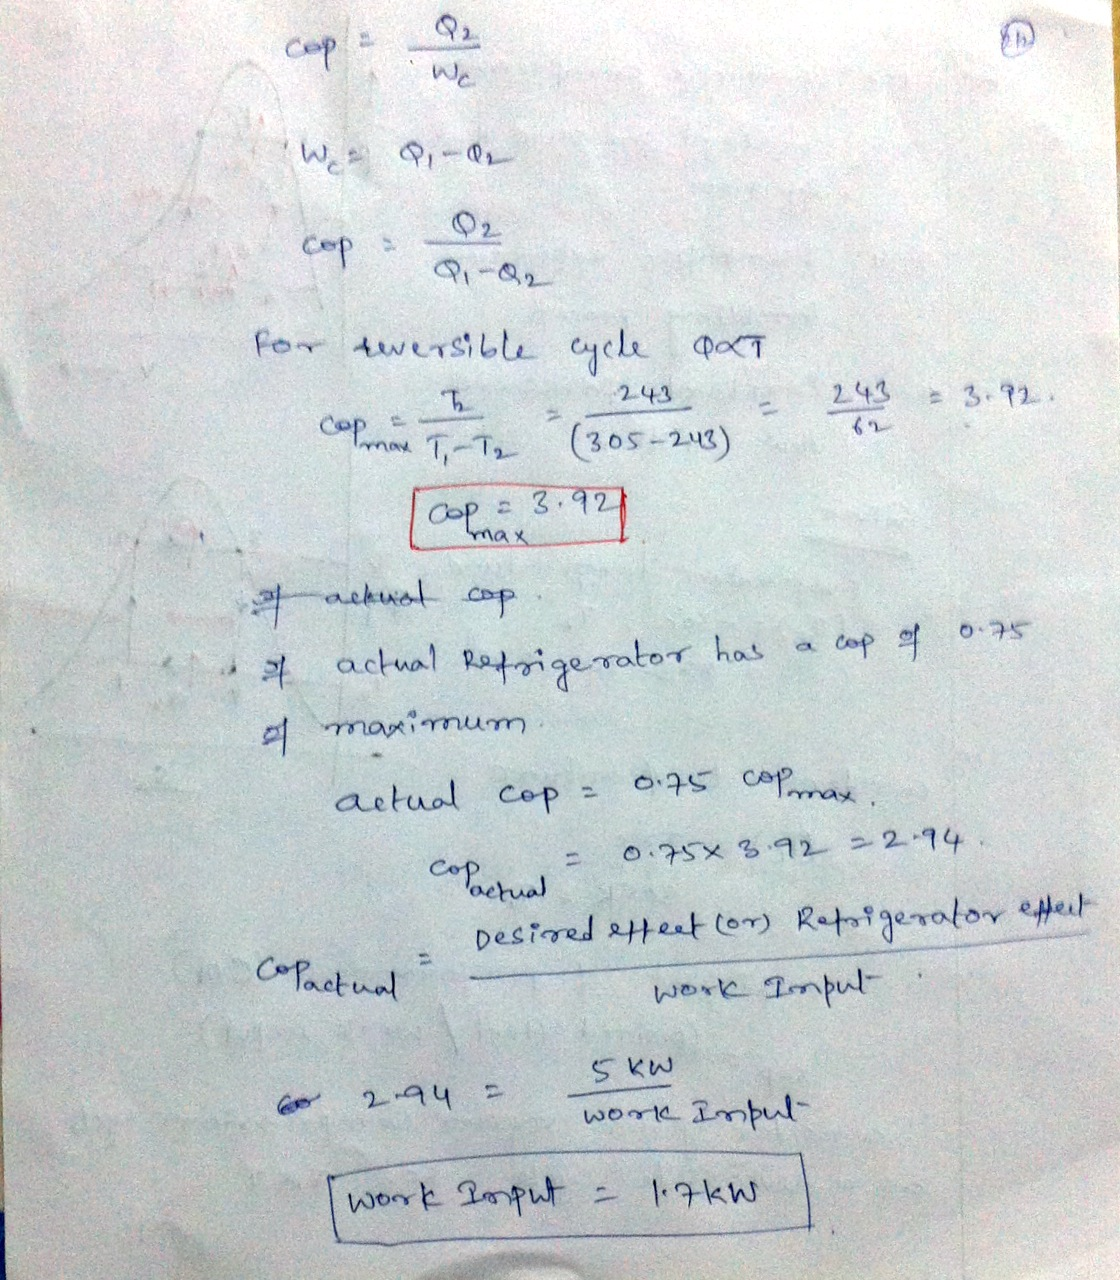 COP = Q2 / Wc
Wc = Q1 - Q2
COP = Q2 / Q1 - Q2
For reversible cycle Q∝T
COPmax = T2 / T1 - T2 = 243 / (305-243) = 243 / 62 = 3.92.
COPmax = 3.92
If actual COP.
If actual Refrigerator has a COP of 0.75
of maximum.
actual COP = 0.75 COPmax.
COPactual = 0.75 x 3.92 = 2.94.
COPactual = Desired effect (or) Refrigerator effect / work Input
2.94 = 5 KW / work Input
Work Input = 1.7kW